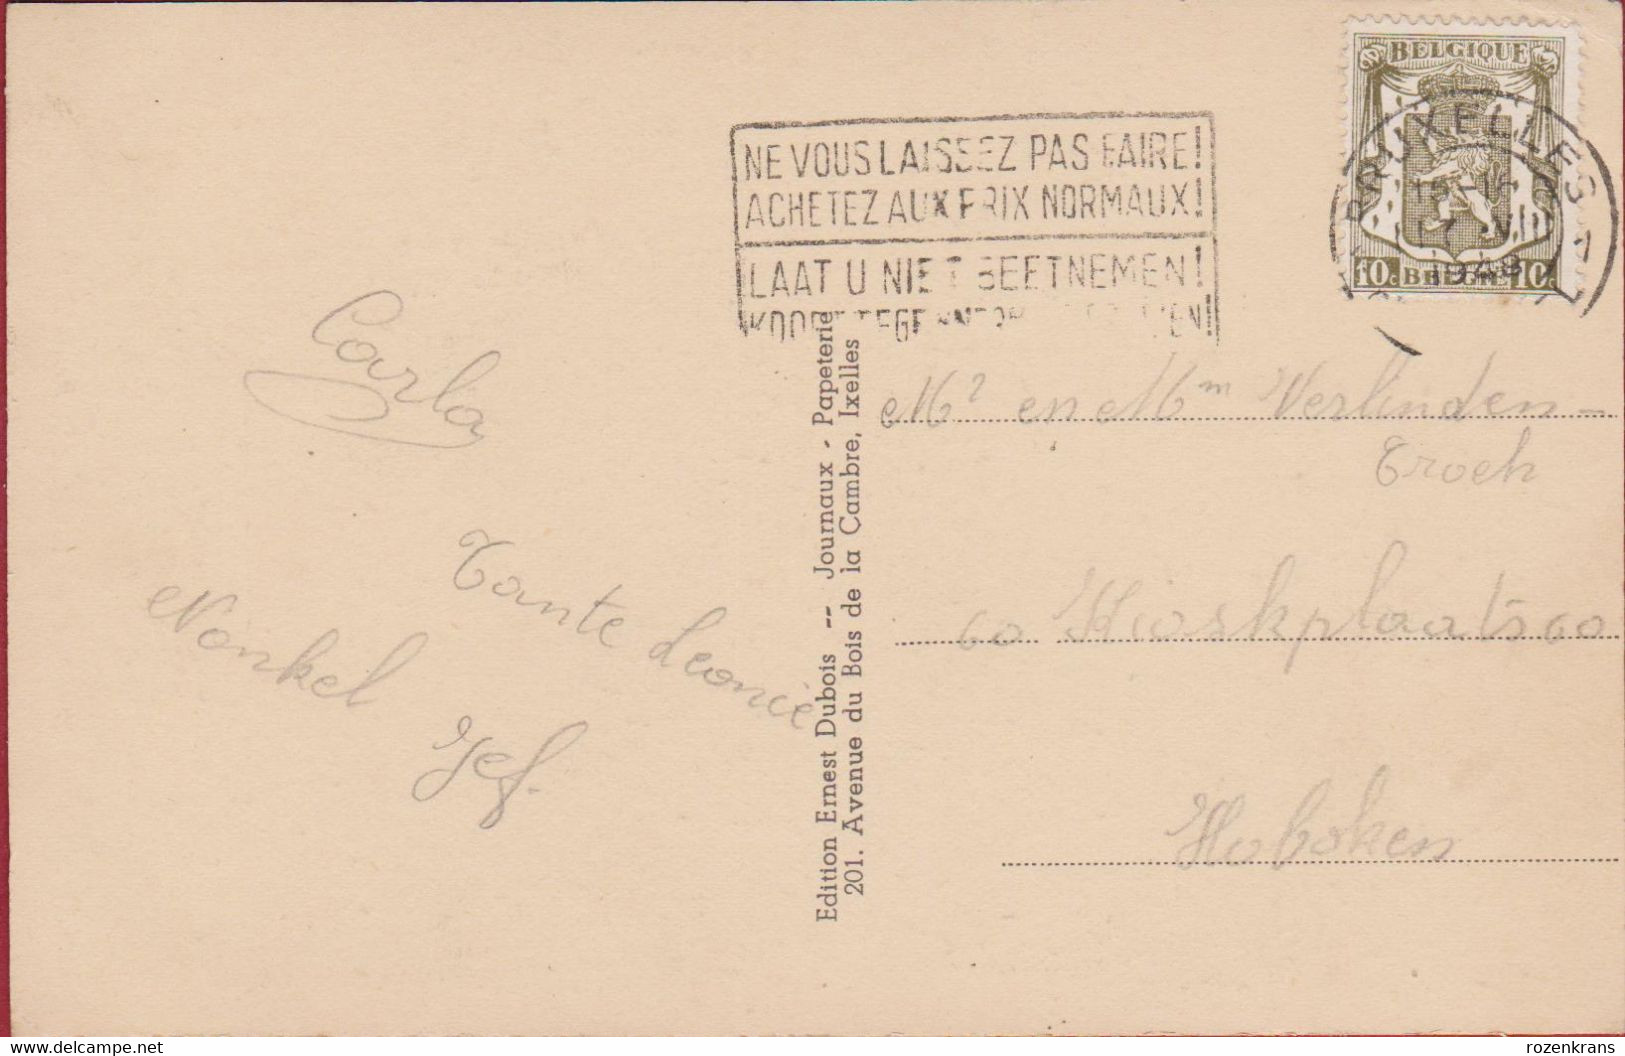 BELGIQUE
BRUXELLES
1948
10c BELGIE 10c
NE VOUS LAISSEZ PAS FAIRE!
ACHETEZ AUX PRIX NORMAUX!
LAAT U NIET BEETNEMEN!
Carla
Tante Leonie
Nonkel Jef.
Edition Ernest Dubois -- Journaux - Papeterie
201. Avenue du Bois de la Cambre, Ixelles
Mr en Mm Verlinden-
Troch
60 Kioskplaats 60
Hoboken
www.delcampe.net
rozenkrans